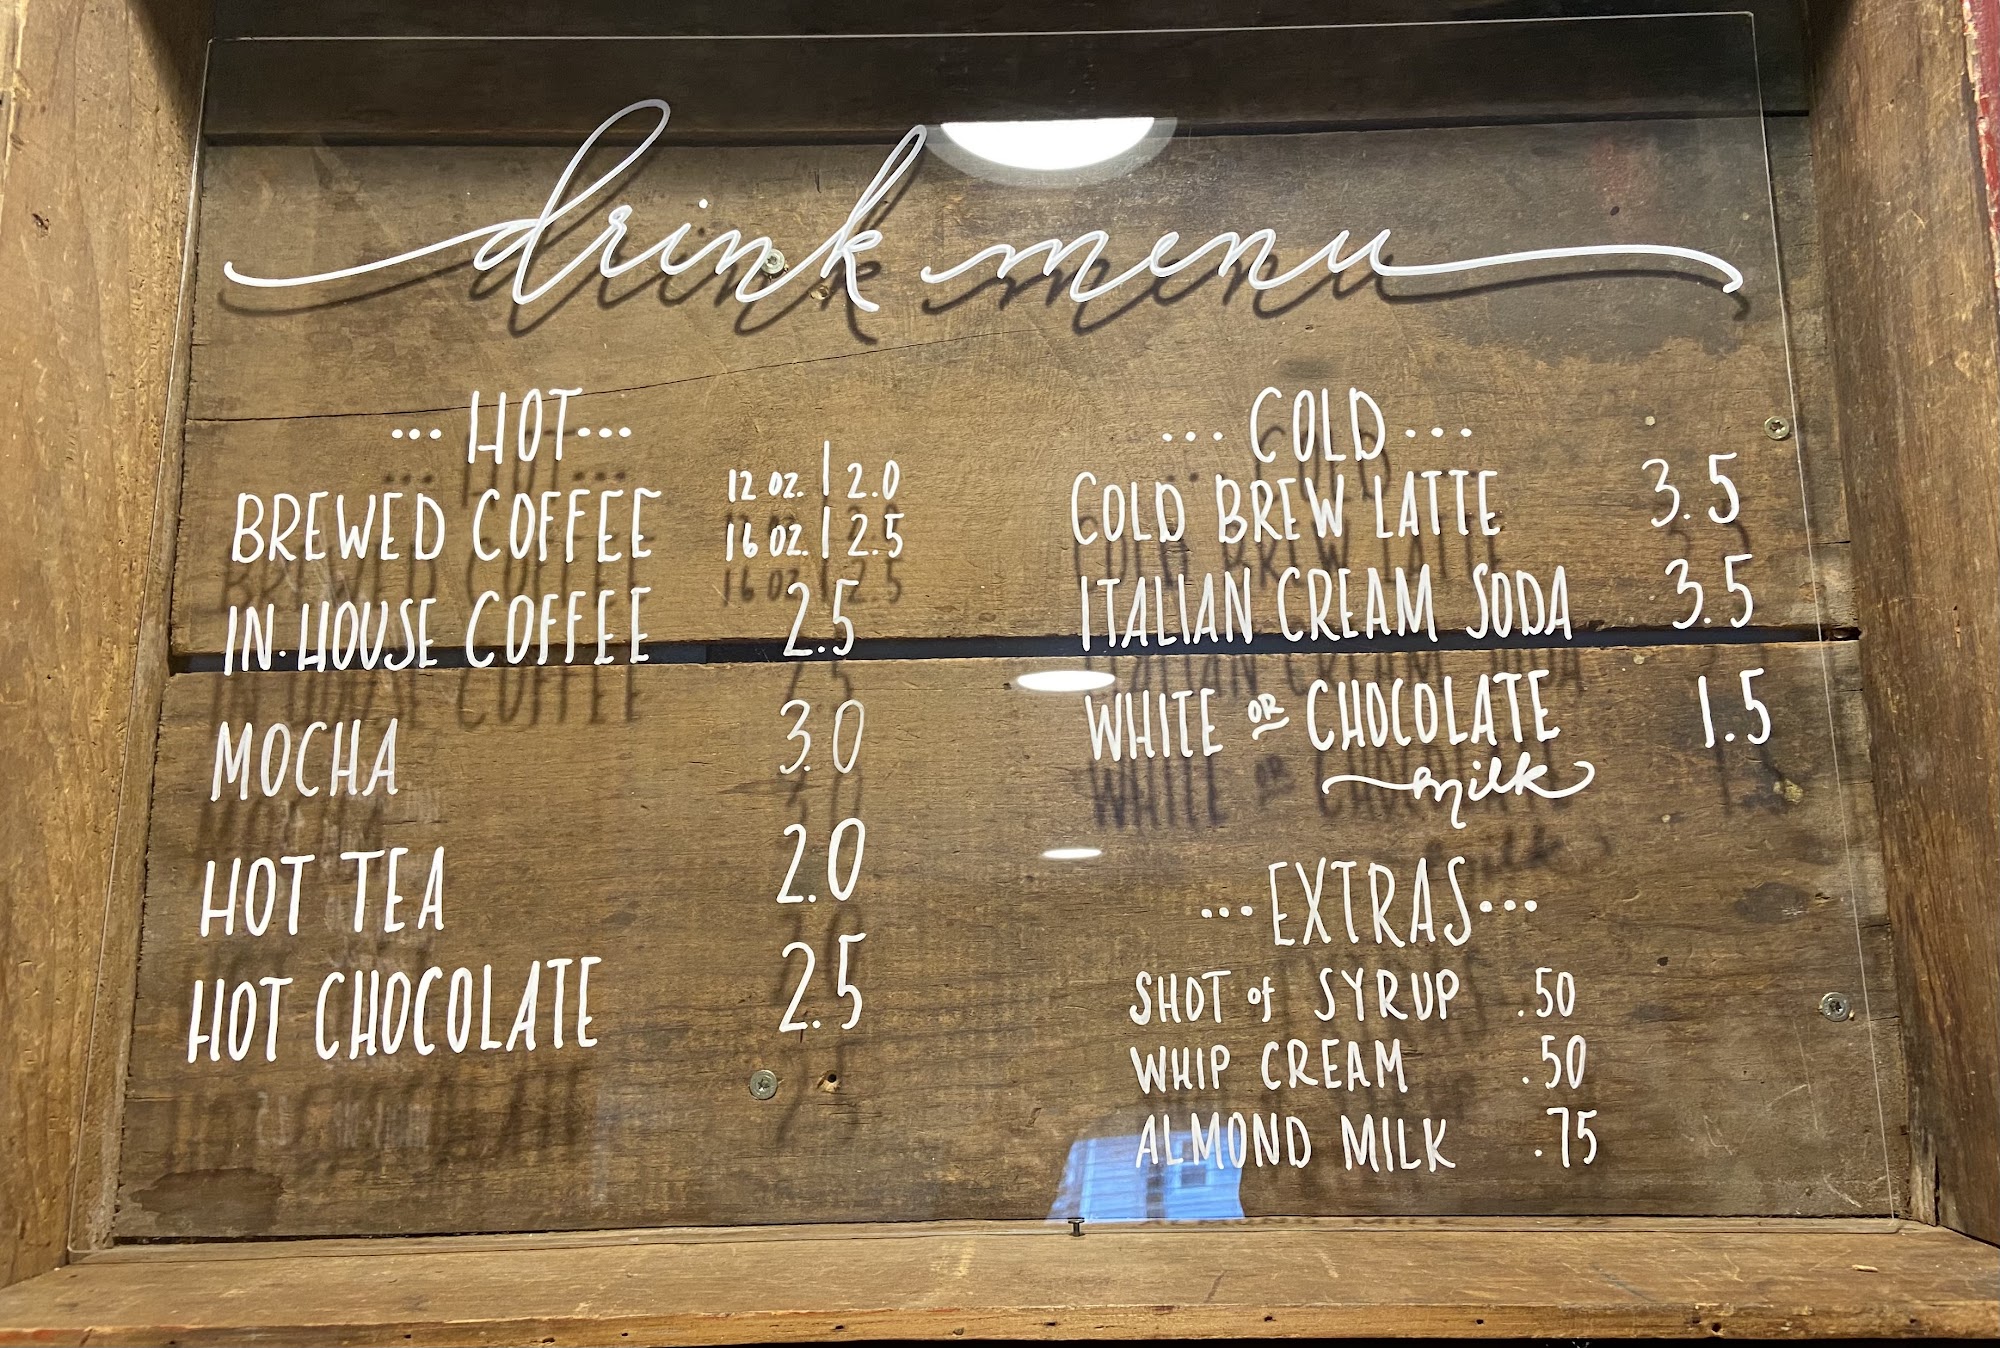 drink menu
... HOT ...
BREWED COFFEE 12 OZ. | 2.0
16 OZ. | 2.5
IN-HOUSE COFFEE 2.5
MOCHA 3.0
HOT TEA 2.0
HOT CHOCOLATE 2.5
... COLD ...
COLD BREW LATTE 3.5
ITALIAN CREAM SODA 3.5
WHITE OR CHOCOLATE 1.5
milk
... EXTRAS ...
SHOT of SYRUP .50
WHIP CREAM .50
ALMOND MILK .75